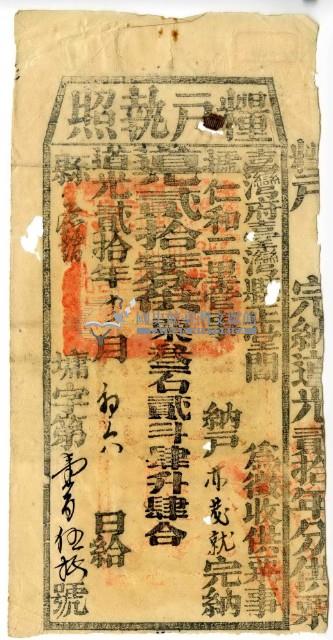 糧戶執照
糧戶 完納道光貳拾年分供粟
臺灣府臺灣縣正堂閻 為徵收供粟事
仁和二里 納戶 完納
道光貳拾年分供粟壹石貳斗肆升肆合
道光貳拾年 月初六日給
縣
字第壹百伍拾號